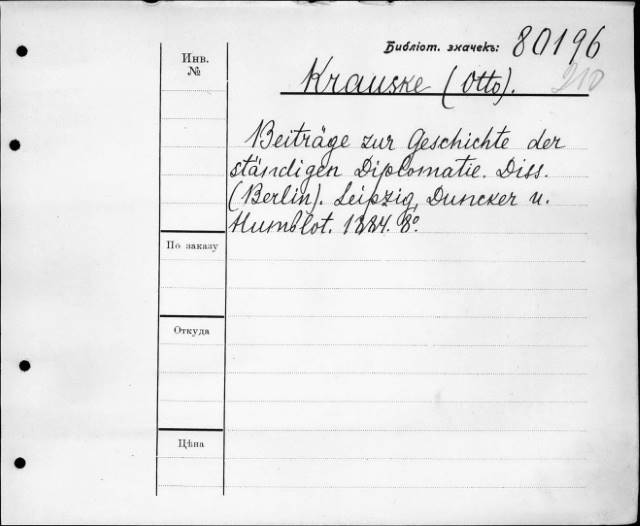 Библіот. значекъ: 80196
Инв.
№
Krauske (Otto).
210
Beiträge zur Geschichte der
ständigen Diplomatie. Diss.
(Berlin). Leipzig, Duncker u.
Humblot. 1884. 8°.
По заказу
Откуда
Цѣна